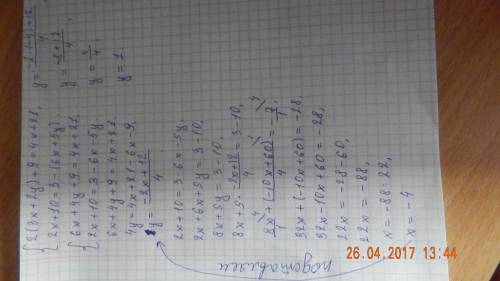 {2(3x+2y)+9=4x+21,
2x+10=3-(6x+5y).
{6x+4y+9=4x+21,
2x+10=3-6x-5y
6x+4y+9=4x+21
4y=4x+21-6x-9,
y=\frac{-2x+12}{4}
2x+10=3-6x-5y,
2x+6x+5y=3-10,
8x+5y=3-10,
8x+5·\frac{-2x+12}{4}=3-10,
\frac{8x}{1}+\frac{(-10x+60)}{4}=-\frac{7}{1}
32x+(-10x+60)=-28,
32x-10x+60=-28,
22x=-28-60,
22x=-88,
x=-88:22,
x=-4
подставляем
y=\frac{-2·(-4)+12}{4},
y=\frac{-8+12}{4},
y=\frac{4}{4},
y=1
26.04.2017 13:44